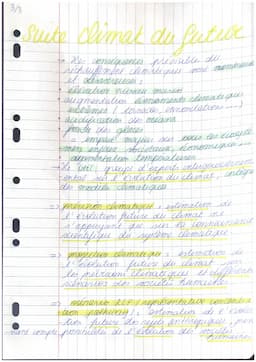 3/3
Suite climat du futur
→ Les conséquences prévisibles du
réchauffement climatique sont nombreuses
et désastreuses :
élévation niveau marin
augmentation évènements climatiques
extrêmes ( canicule, inondations ...)
acidification des océans
fonte des glaces
= impact majeur sur tous les écosys
augmentation températures
→ Le GIEC : groupe d'experts intergouvernemental
sur l'évolution du climat,
des modèles climatiques
=> prévision climatique : estimation de
l'évolution future du climat en
s'appuyant que sur la connaissance
scientifique du système climatique
=> projection climatique : estimation de
l'évolution future du climat
les prévisions climatiques et différents
scénarios des sociétés humaines
=> scénario RCP (representative concentra
tion pathway) : estimation de l'évolu
tion future des rejets anthropiques,
compte de l'évolution des sociétés
humaines